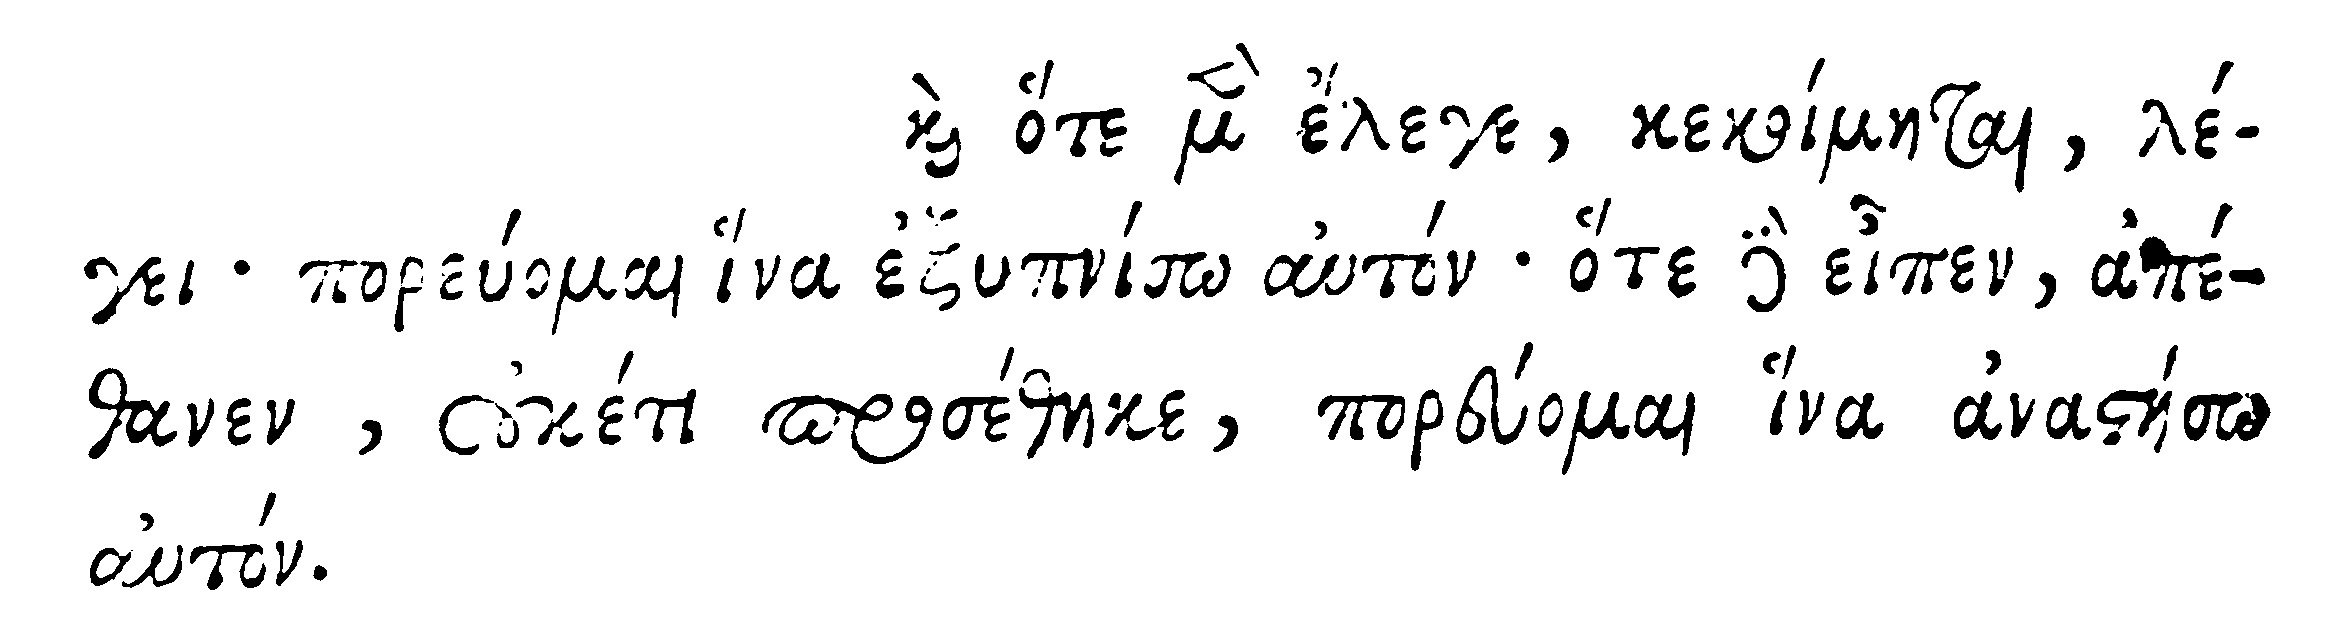 καὶ ὅτε μὲν ἔλεγε, κεκοίμηται, λέ-
γει· πορεύομαι ἵνα ἐξυπνίσω αὐτόν· ὅτε δὲ εἶπεν, ἀπέ-
θανεν, οὐκέτι προσέθηκε, πορεύομαι ἵνα ἀναστήσω
αὐτόν.